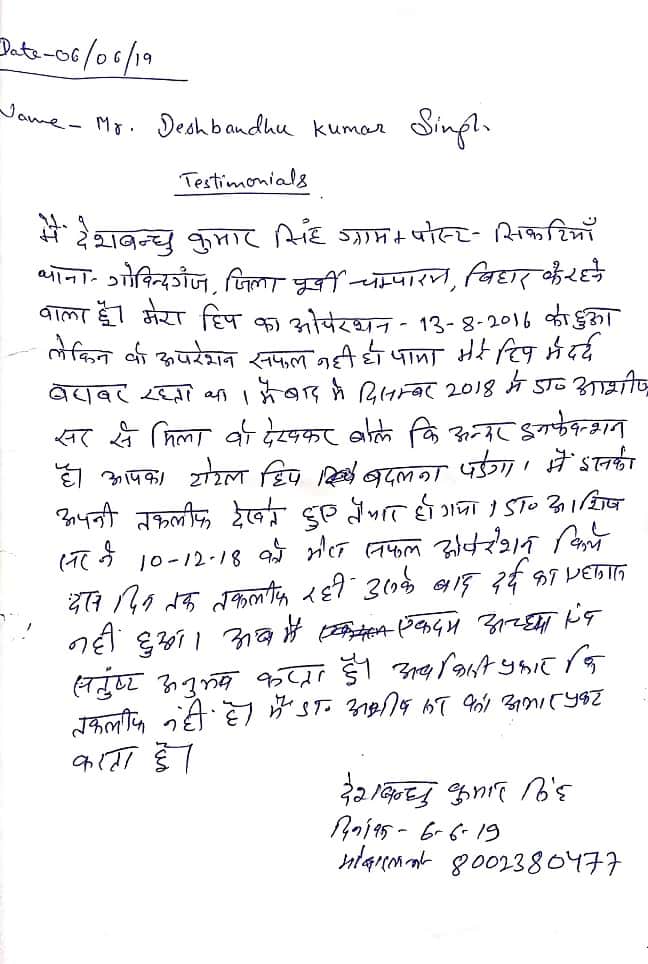 Date-06/06/19
Name - Mr. Deshbandhu Kumar Singh.
Testimonials
मैं देशबन्धु कुमार सिंह ग्राम + पोस्ट - सिकटियाँ
थाना- गोविन्दगंज, जिला पूर्वी चम्पारन, बिहार के रहने
वाला हूँ। मेरा हिप का ओपरेशन - 13-8-2016 को हुआ
लेकिन वो अपरेशन सफल नही हो पाया मेरे हिप मे दर्द
बराबर रहता था। मै बाद मे दिसम्बर 2018 मे डा० आशीष
सर से मिला वो देखकर बोले कि अन्दर इनफेक्शन
है। आपका टोटल हिप बदलना पडेगा। मैं इनको
अपनी तकलीफ देखते हुए तैयार हो गया। डा० आशिष
सर ने 10-12-18 को मेरा सफल ओपरेशन किये
दस दिन तक तकलीफ रही उसके बाद दर्द का
नही हुआ। अब मैं एकदम अच्छा एवं
सतुंष्ट अनुभव करता हूँ। अब किसी प्रकार कि
तकलीफ नही है। मैं डा० आशीष सर का अभार प्रकट
करता हूँ।
देशबन्धु कुमार सिंह
दिनांक - 6-6-19
8002380477